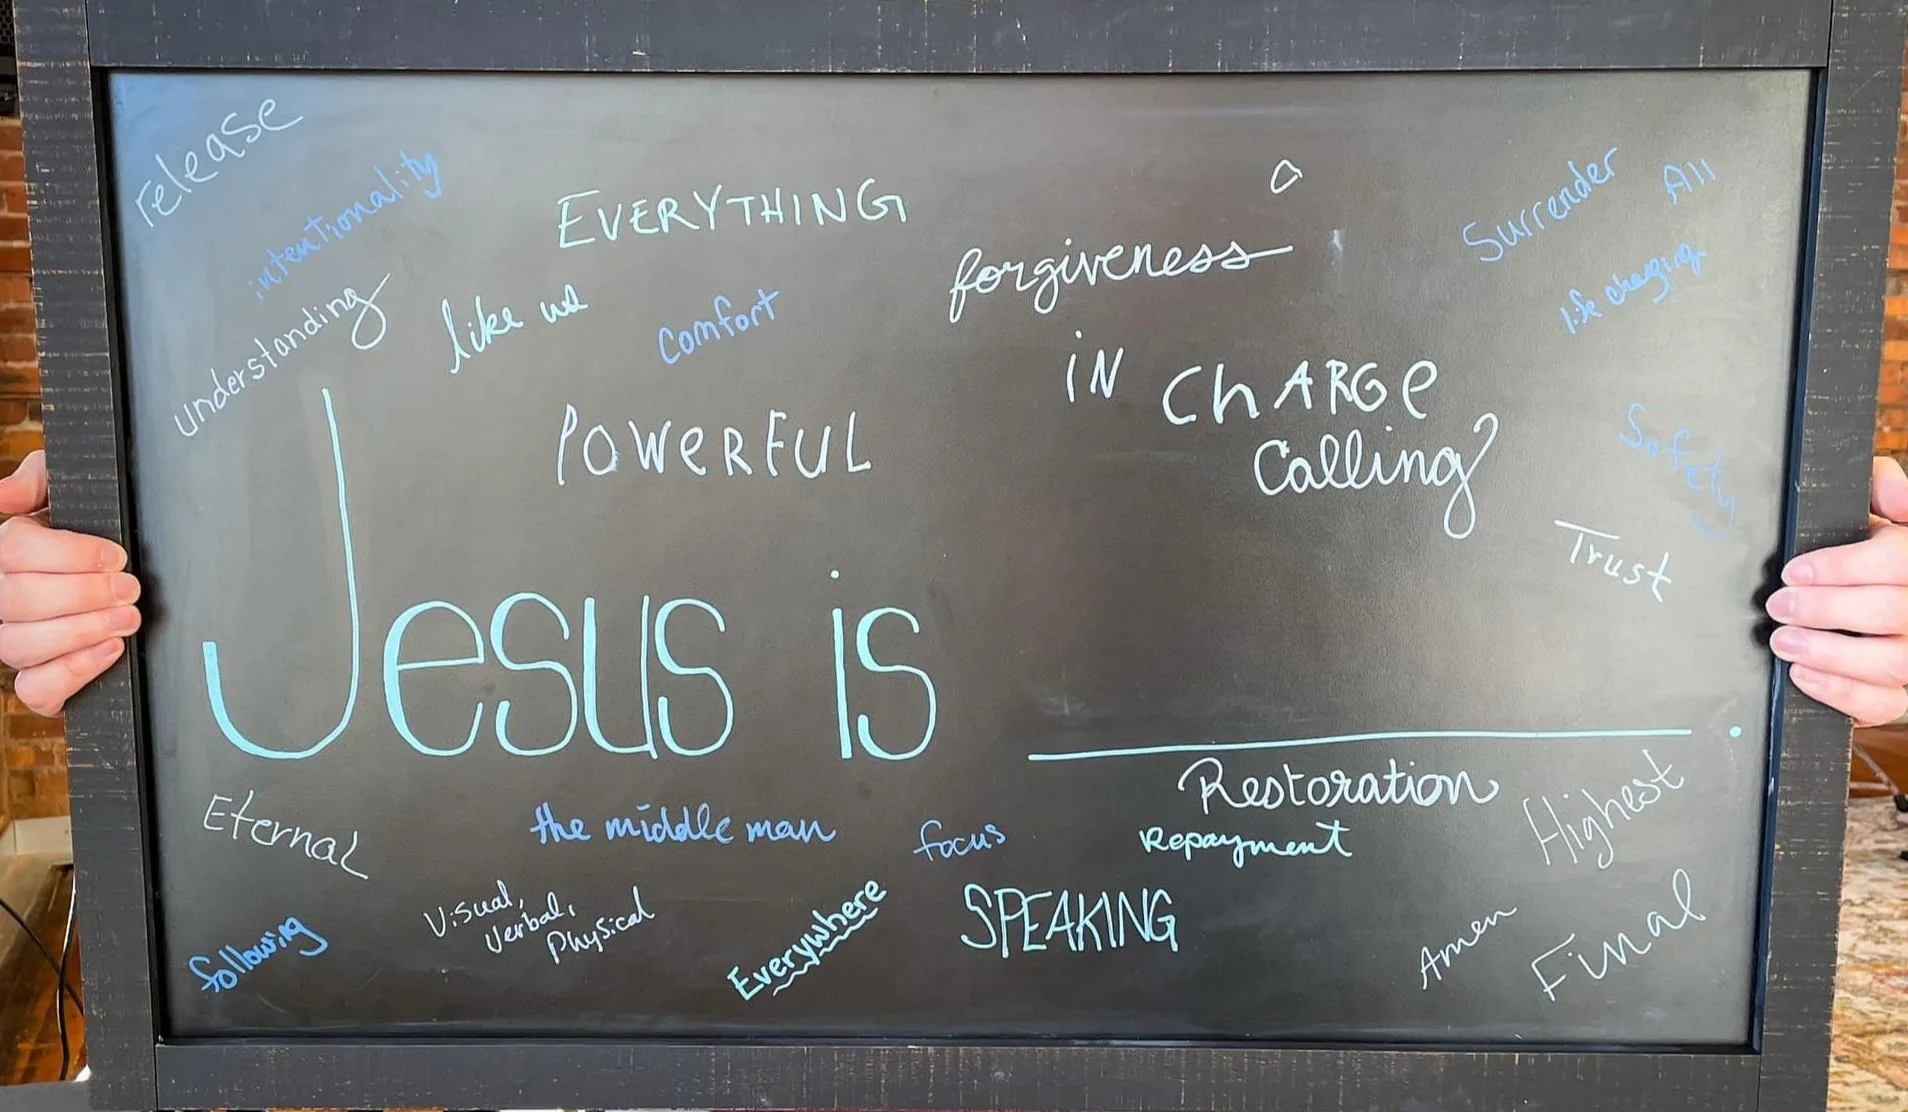 release
intentionality
understanding
EVERYTHING
like us
comfort
POWERFUL
a
forgiveness
IN CHARGE
Calling
Surrender
All
life changing
Safety
Trust
Jesus is ____________.
Eternal
the middle man
focus
Restoration
Repayment
Highest
following
Visual,
Verbal,
Physical
Everywhere
SPEAKING
Amen
Final